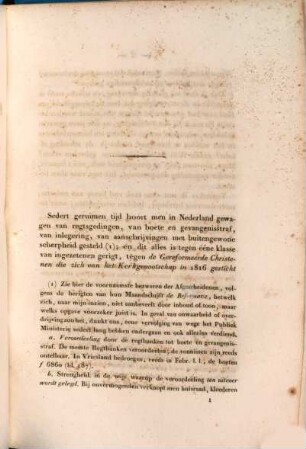 Sedert geruimen tijd hoort men in Nederland gewa-
gen van regtsgedingen, van boete en gevangenisstraf,
van inlegering, van aanschrijvingen met buitengewone
scherpheid gesteld (1); en dit alles is tegen ééne klasse
van ingezetenen gerigt, tegen de Gereformeerde Christe-
nen die zich van het Kerkgenootschap in 1816 gesticht
(1) Zie hier de voornaamste bezwaren der Afgescheidenen, vol-
gens de berigten van hun Maandschrift de Reformatie, hetwelk
zich, naar mijn inzien, niet aanbeveelt door inhoud of toon, maar
welks opgave voorzeker juist is. In geval van onwaarheid of over-
drijving zou het, dunkt ons, eene vervolging van wege het Publiek
Ministerie sedert lang hebben ondergaan en ook alleszins verdiend.
a. Veroordeeling door de regtbanken tot boete en gevangenis-
straf. De meeste Regtbanken veroordeelen; de vonnissen zijn reeds
ontelbaar. In Vriesland bedroegen, reeds in Febr. l.l., de boeten
f 6860 (bl. 187).
b. Strengheid in de wijs waarop de veroordeeling ten uitvoer
wordt gelegd. Bij onvermogenden verkoopt men huisraad, kleederen
1